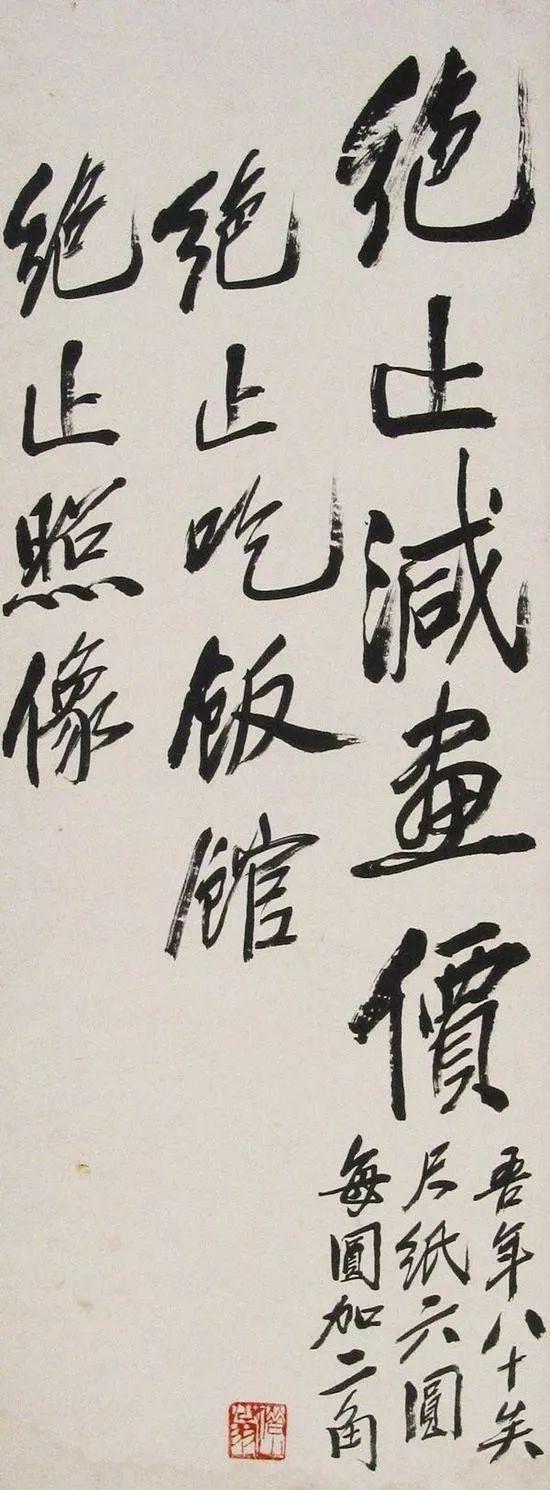 絕止減畫價
吾年八十矣
尺紙六圓
每圓加二角
絕止吃飯館
絕止照像